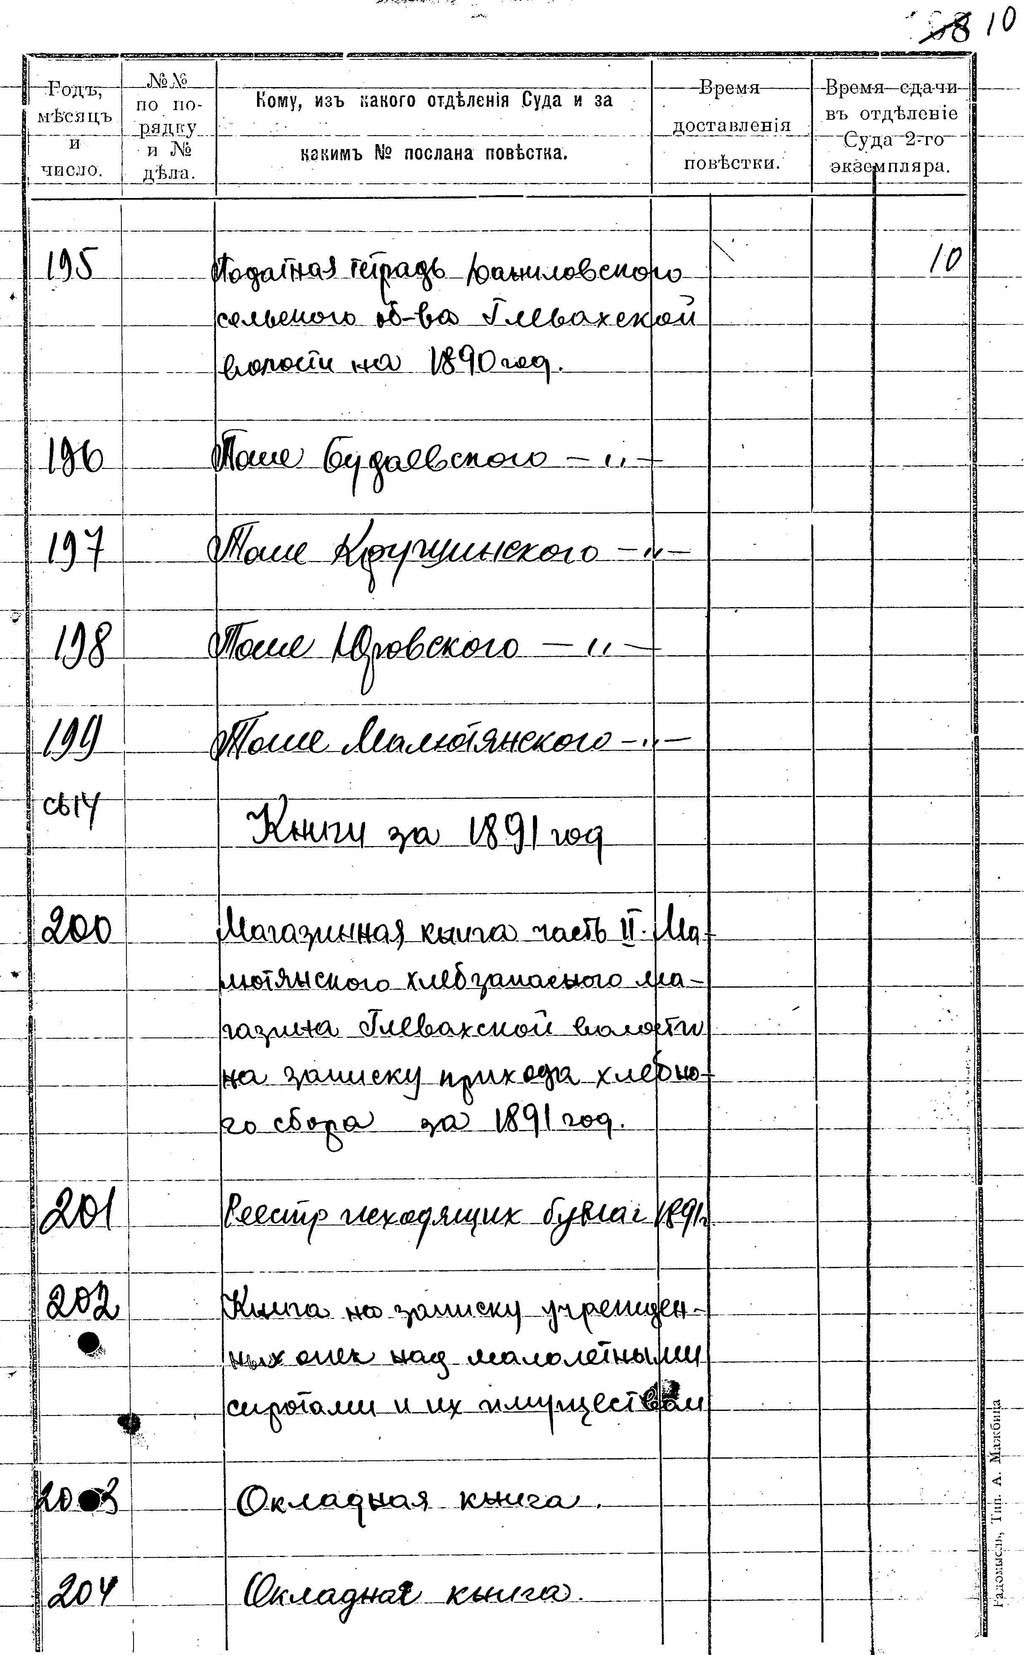 10
Годъ, мѣсяцъ и число.
№№ по порядку и № дѣла.
Кому, изъ какого отдѣленія Суда и за
какимъ № послана повѣстка.
Время доставленія повѣстки.
Время сдачи въ отдѣленіе Суда 2-го экземпляра.
195 Податная тетрадь Даниловского 10
сельского об-ва Глевахской
волости на 1890 год.
196 Тоже Будаевского — " —
197 Тоже Кручинского — " —
198 Тоже Юровского — " —
199 Тоже Малютянского — " —
св 14 Книги за 1891 год
200 Магазинная книга часть II. Ма-
лютянского хлебзапасного ма-
газина Глевахской волости
на записку прихода хлебно-
го сбора за 1891 год.
201 Реестр исходящих бумаг 1891 г.
202 Книга на записку учрежден-
ных опек над малолетными
сиротами и их имуществом
203 Окладная книга.
204 Окладная книга.
Радомысль, Тип. А. Мажбица